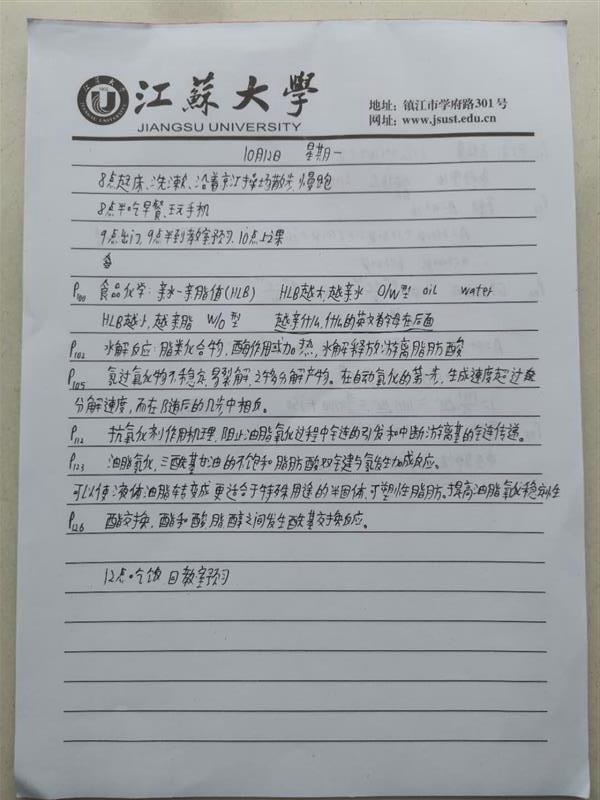 江蘇大學
JIANGSU UNIVERSITY
地址：镇江市学府路301号
网址：www.jsust.edu.cn
10月12日 星期一
8点起床、洗漱、沿着京江操场散步、慢跑
8点半吃早餐、玩手机
9点出门，9点半到教室预习，10点上课
P100 食品化学：亲水-亲脂值(HLB) HLB越大,越亲水 O/W型 oil water
HLB越小,越亲脂 W/O型 越亲什么,什么的英文首字母在后面
P102 水解反应：脂类化合物，酶作用或加热，水解释放游离脂肪酸
P105 氢过氧化物不稳定,易裂解,之多分解产物。在自动氧化的第一步，生成速度超过
分解速度，而在随后的几步中相反。
P112 抗氧化剂作用机理，阻止油脂氧化过程中链的引发和中断游离基的链传递。
P123 油脂氢化，三酰基甘油的不饱和脂肪酸双键与氢发生加成反应。
可以使液体油脂转变成更适合于特殊用途的半固体、可塑性脂肪。提高油脂氧化稳定性
P126 酯交换，酯和酸、脂、醇之间发生酰基交换反应。
12点吃饭 回教室预习